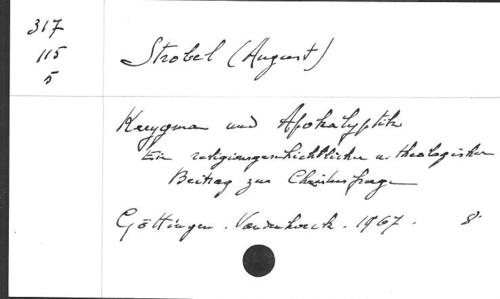 317
115
5
Strobel (August)
Kerygma und Apokalyptik
Ein religionsgeschichtlicher u. theologischer
Beitrag zur Christusfrage
Göttingen. Vandenhoeck. 1967. 8°